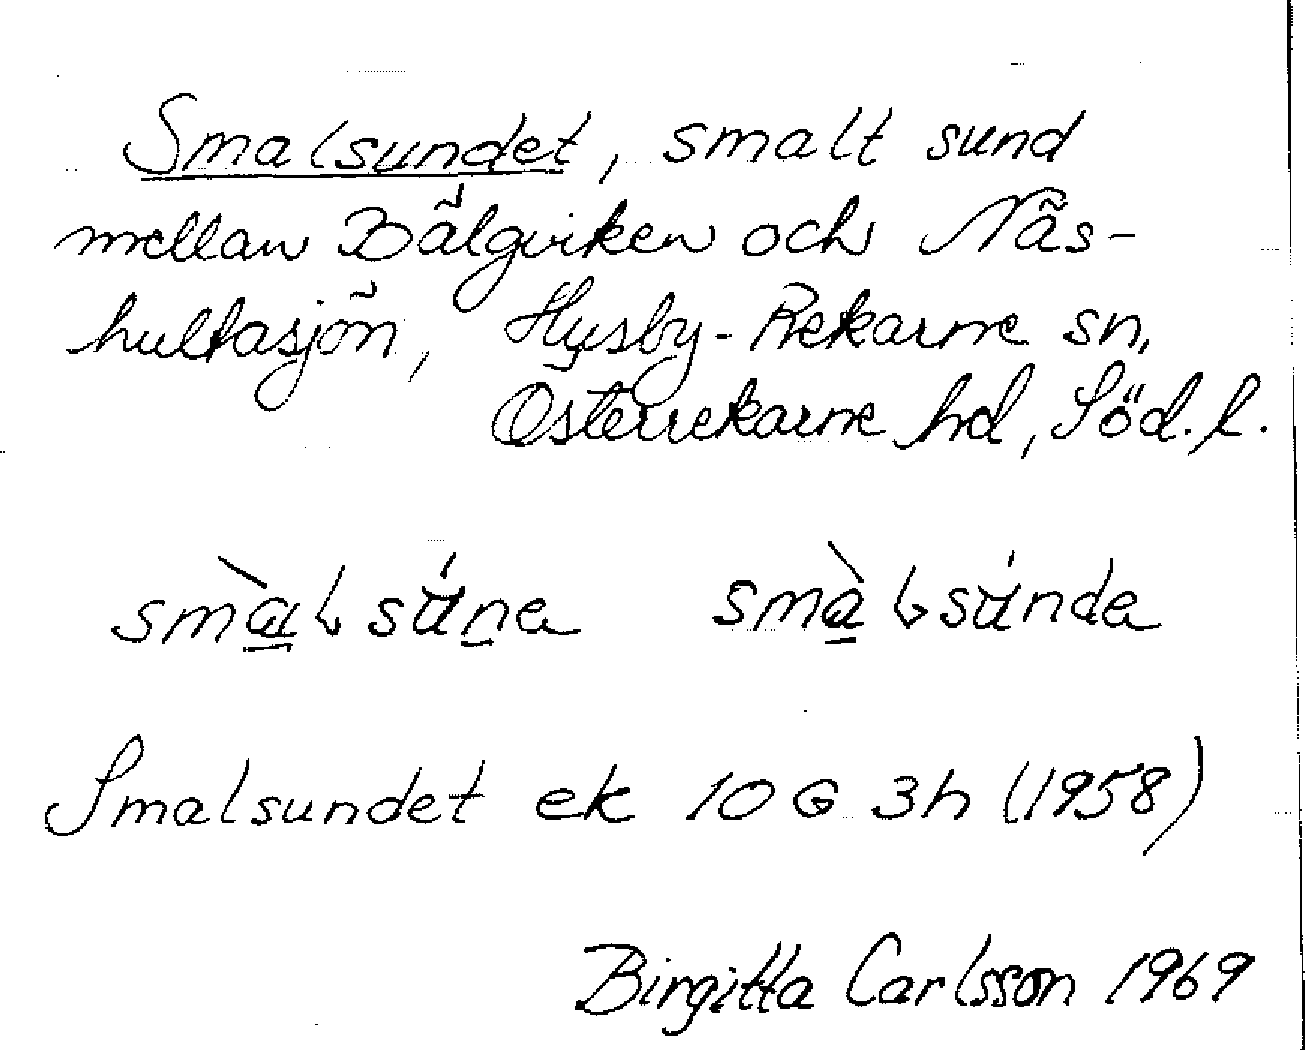 Smalsundet, smalt sund
mellan Bälgviken och Näs-
hultasjön, Husby-Rekarne sn,
Österrekarne hd, Söd. l.
Smalsundet ek 10 G 3h (1958)
Birgitta Carlsson 1969